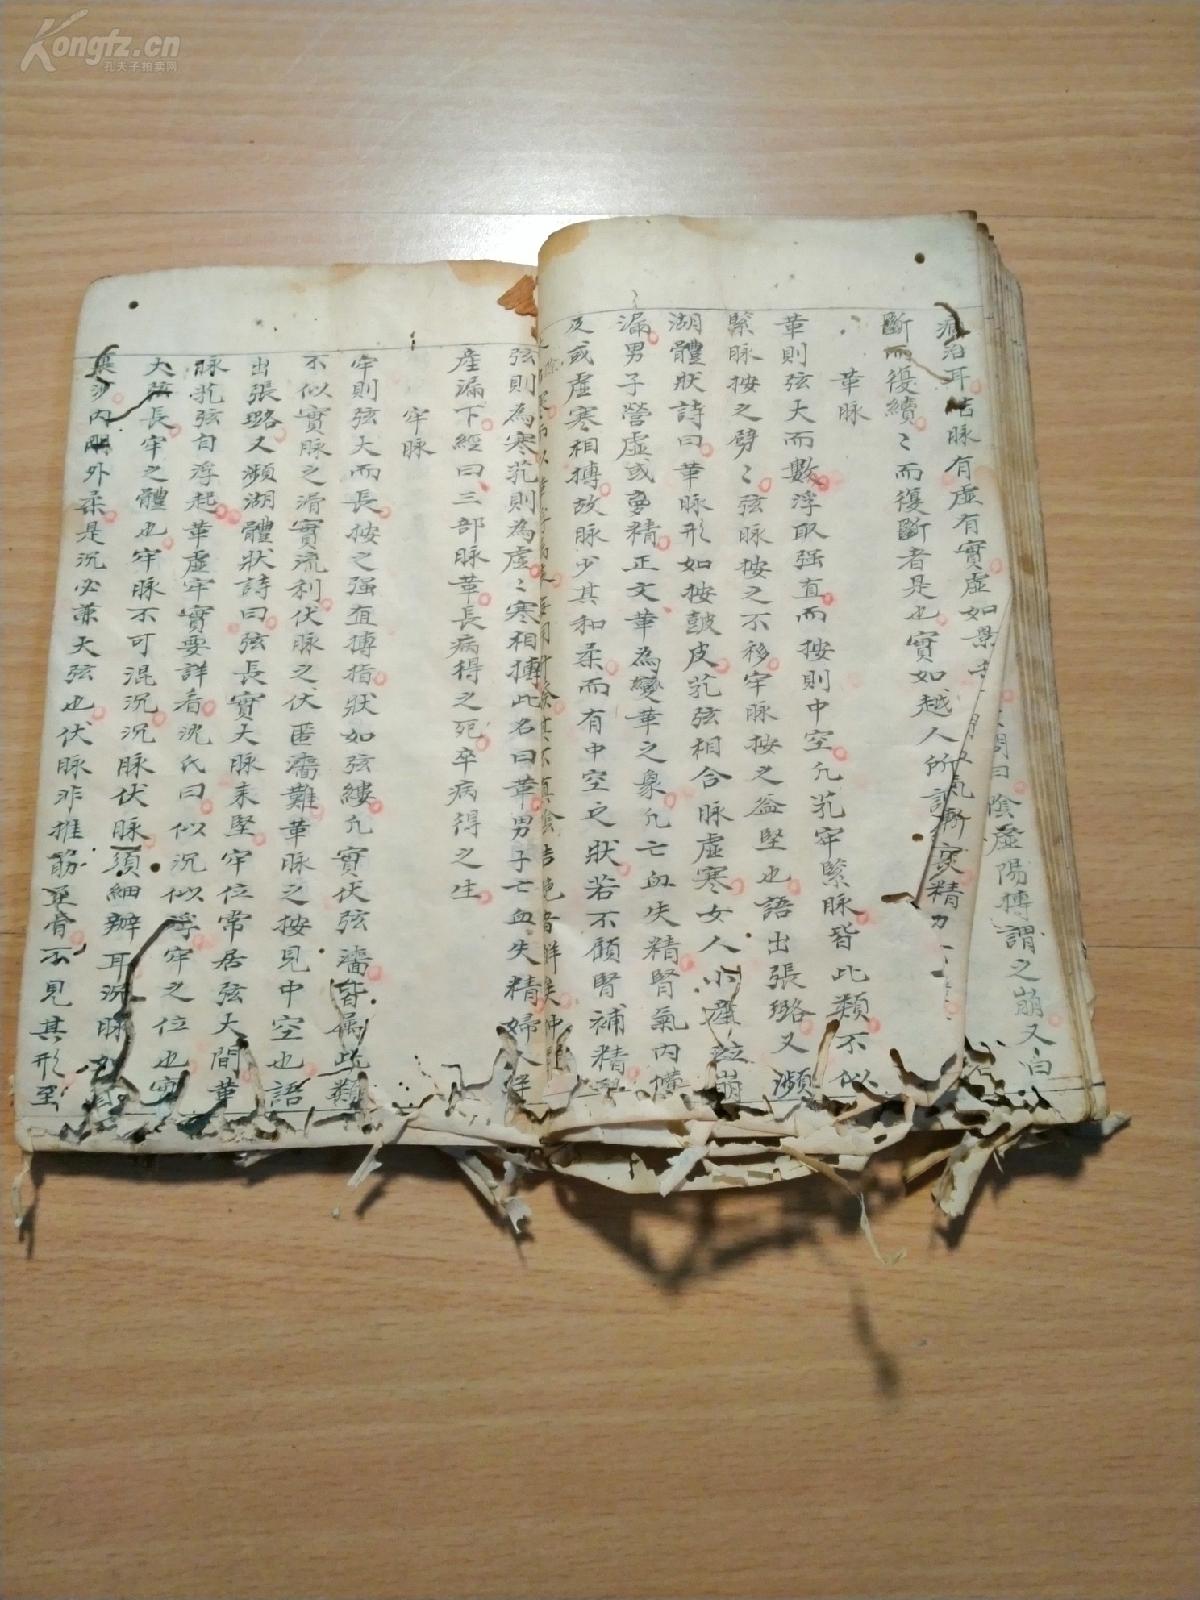 Kongfz.cn
孔夫子拍卖网
病治耳結脉有虛有實虛如景
斷而復續〻而復斷者是也實如越人所
氣漸衰精力
問曰陰虛陽搏謂之崩又白
革脉
革則弦大而數浮取强直而按則中空凢芤牢緊脉皆此類不似
緊脉按之劈〻弦脉按之不移牢脉按之益堅也語出張璐又瀕
湖體狀詩曰革脉形如按皷皮芤弦相合脉虛寒女人小產並崩
漏男子營虛或夢精正文革為變革之象凢亡血失精腎氣內憊
及或虛寒相搏故脉少其和柔而有中空之狀若不顧腎補精
弦則為寒芤則為虛〻寒相摶此名曰革男子亡血失精婦人半
產漏下經曰三部脉革長病得之死卒病得之生
牢脉
牢則弦大而長按之强直搏指狀如弦縷凢實伏弦濇皆屬此類
不似實脉之滑實流利伏脉之伏匿濇難革脉之按見中空也語
出張璐又瀕湖體狀詩曰弦長實大脉來堅牢位常居弦大間革
脉芤弦自浮起革虛牢實要詳看沈氏曰似沉似浮牢之位也實
大弦長牢之體也牢脉不可混沉沉脉伏脉須細辦耳沉脉如
裹沙內剛外柔是沉必兼大弦也伏脉非推筋至骨不見其形至